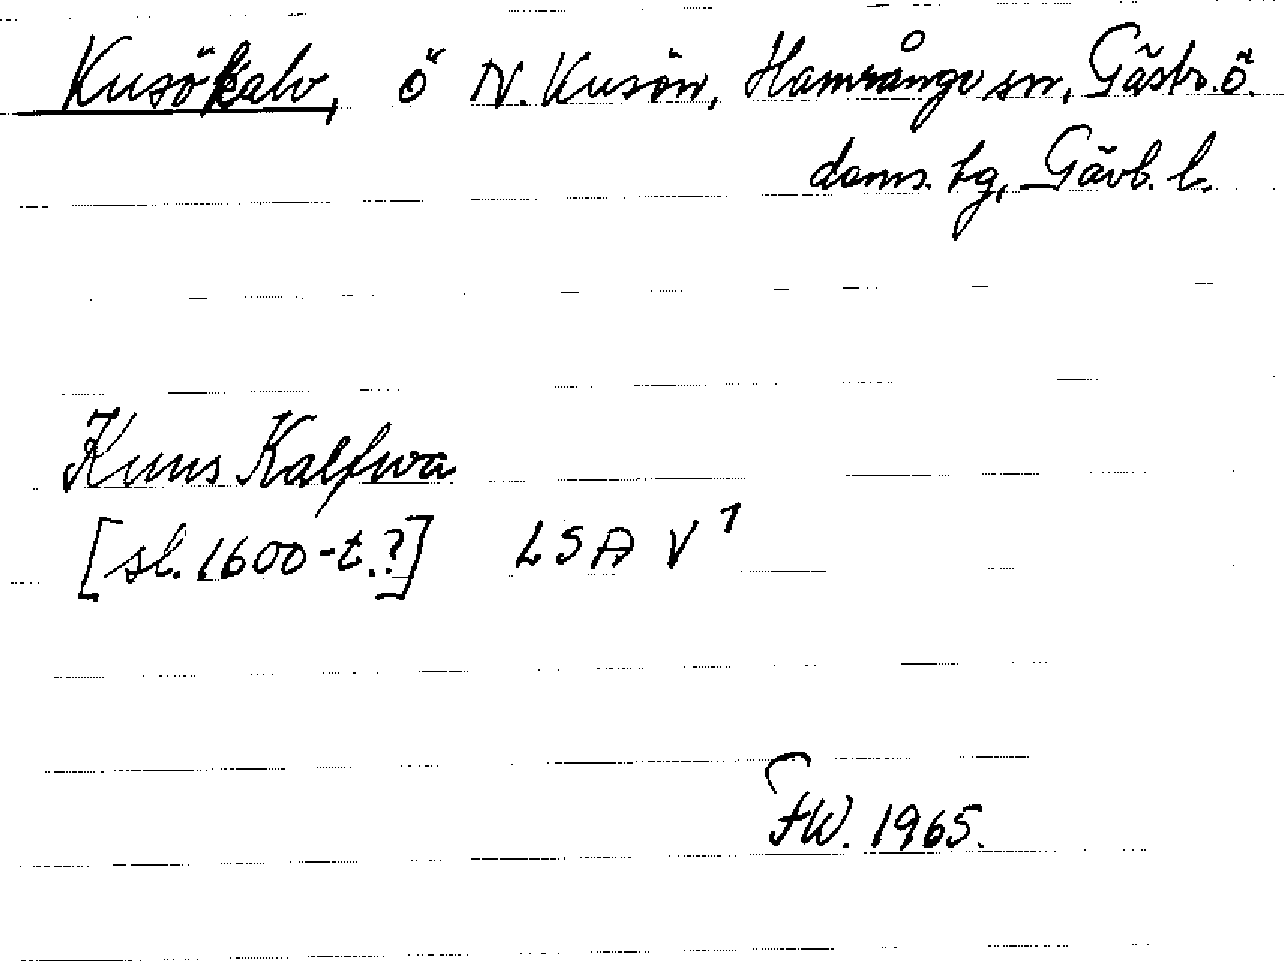 Kusökalv, ö N. Kusön, Hamrånge sn, Gästr. ö.
doms. tg, Gävb. l.
Kuus Kalfwa
[sl. 1600-t.?] LSA V 1
FW. 1965.